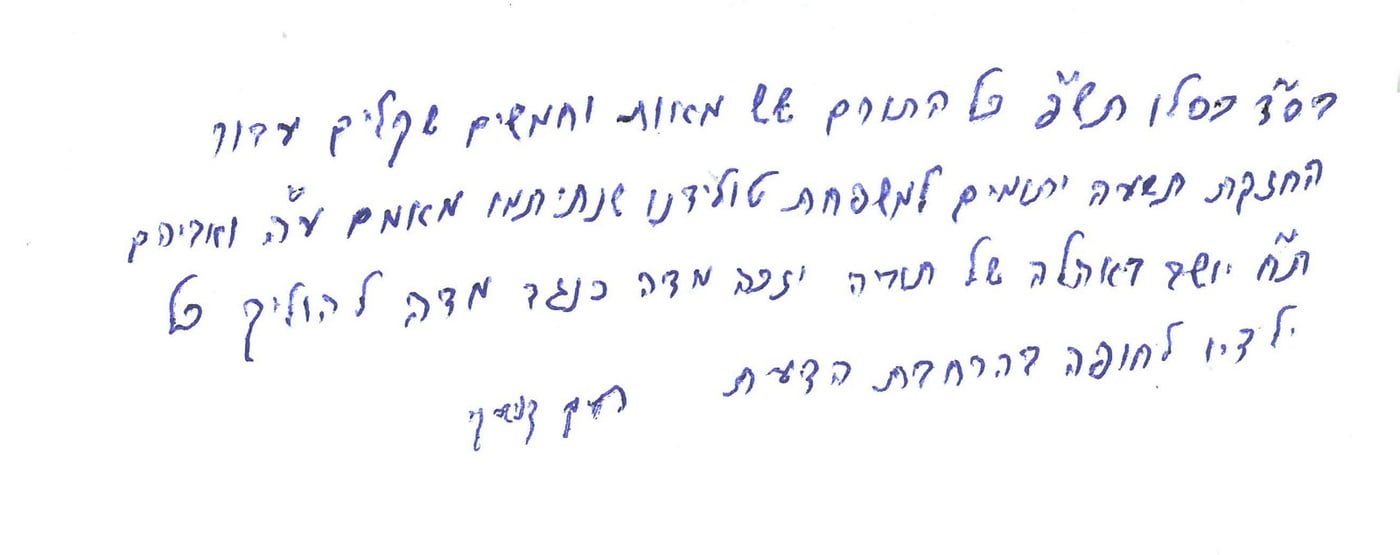 בס"ד כסלו תש"פ כל התורם שש מאות וחמשים שקלים עבור
החזקת תשעה יתומים למשפחת טולידנו שנתיתמו מאמם ע"ה ואביהם
ת"ח יושב באהלה של תורה יזכה מדה כנגד מדה להוליך כל
ילדיו לחופה בהרחבת הדעת חיים